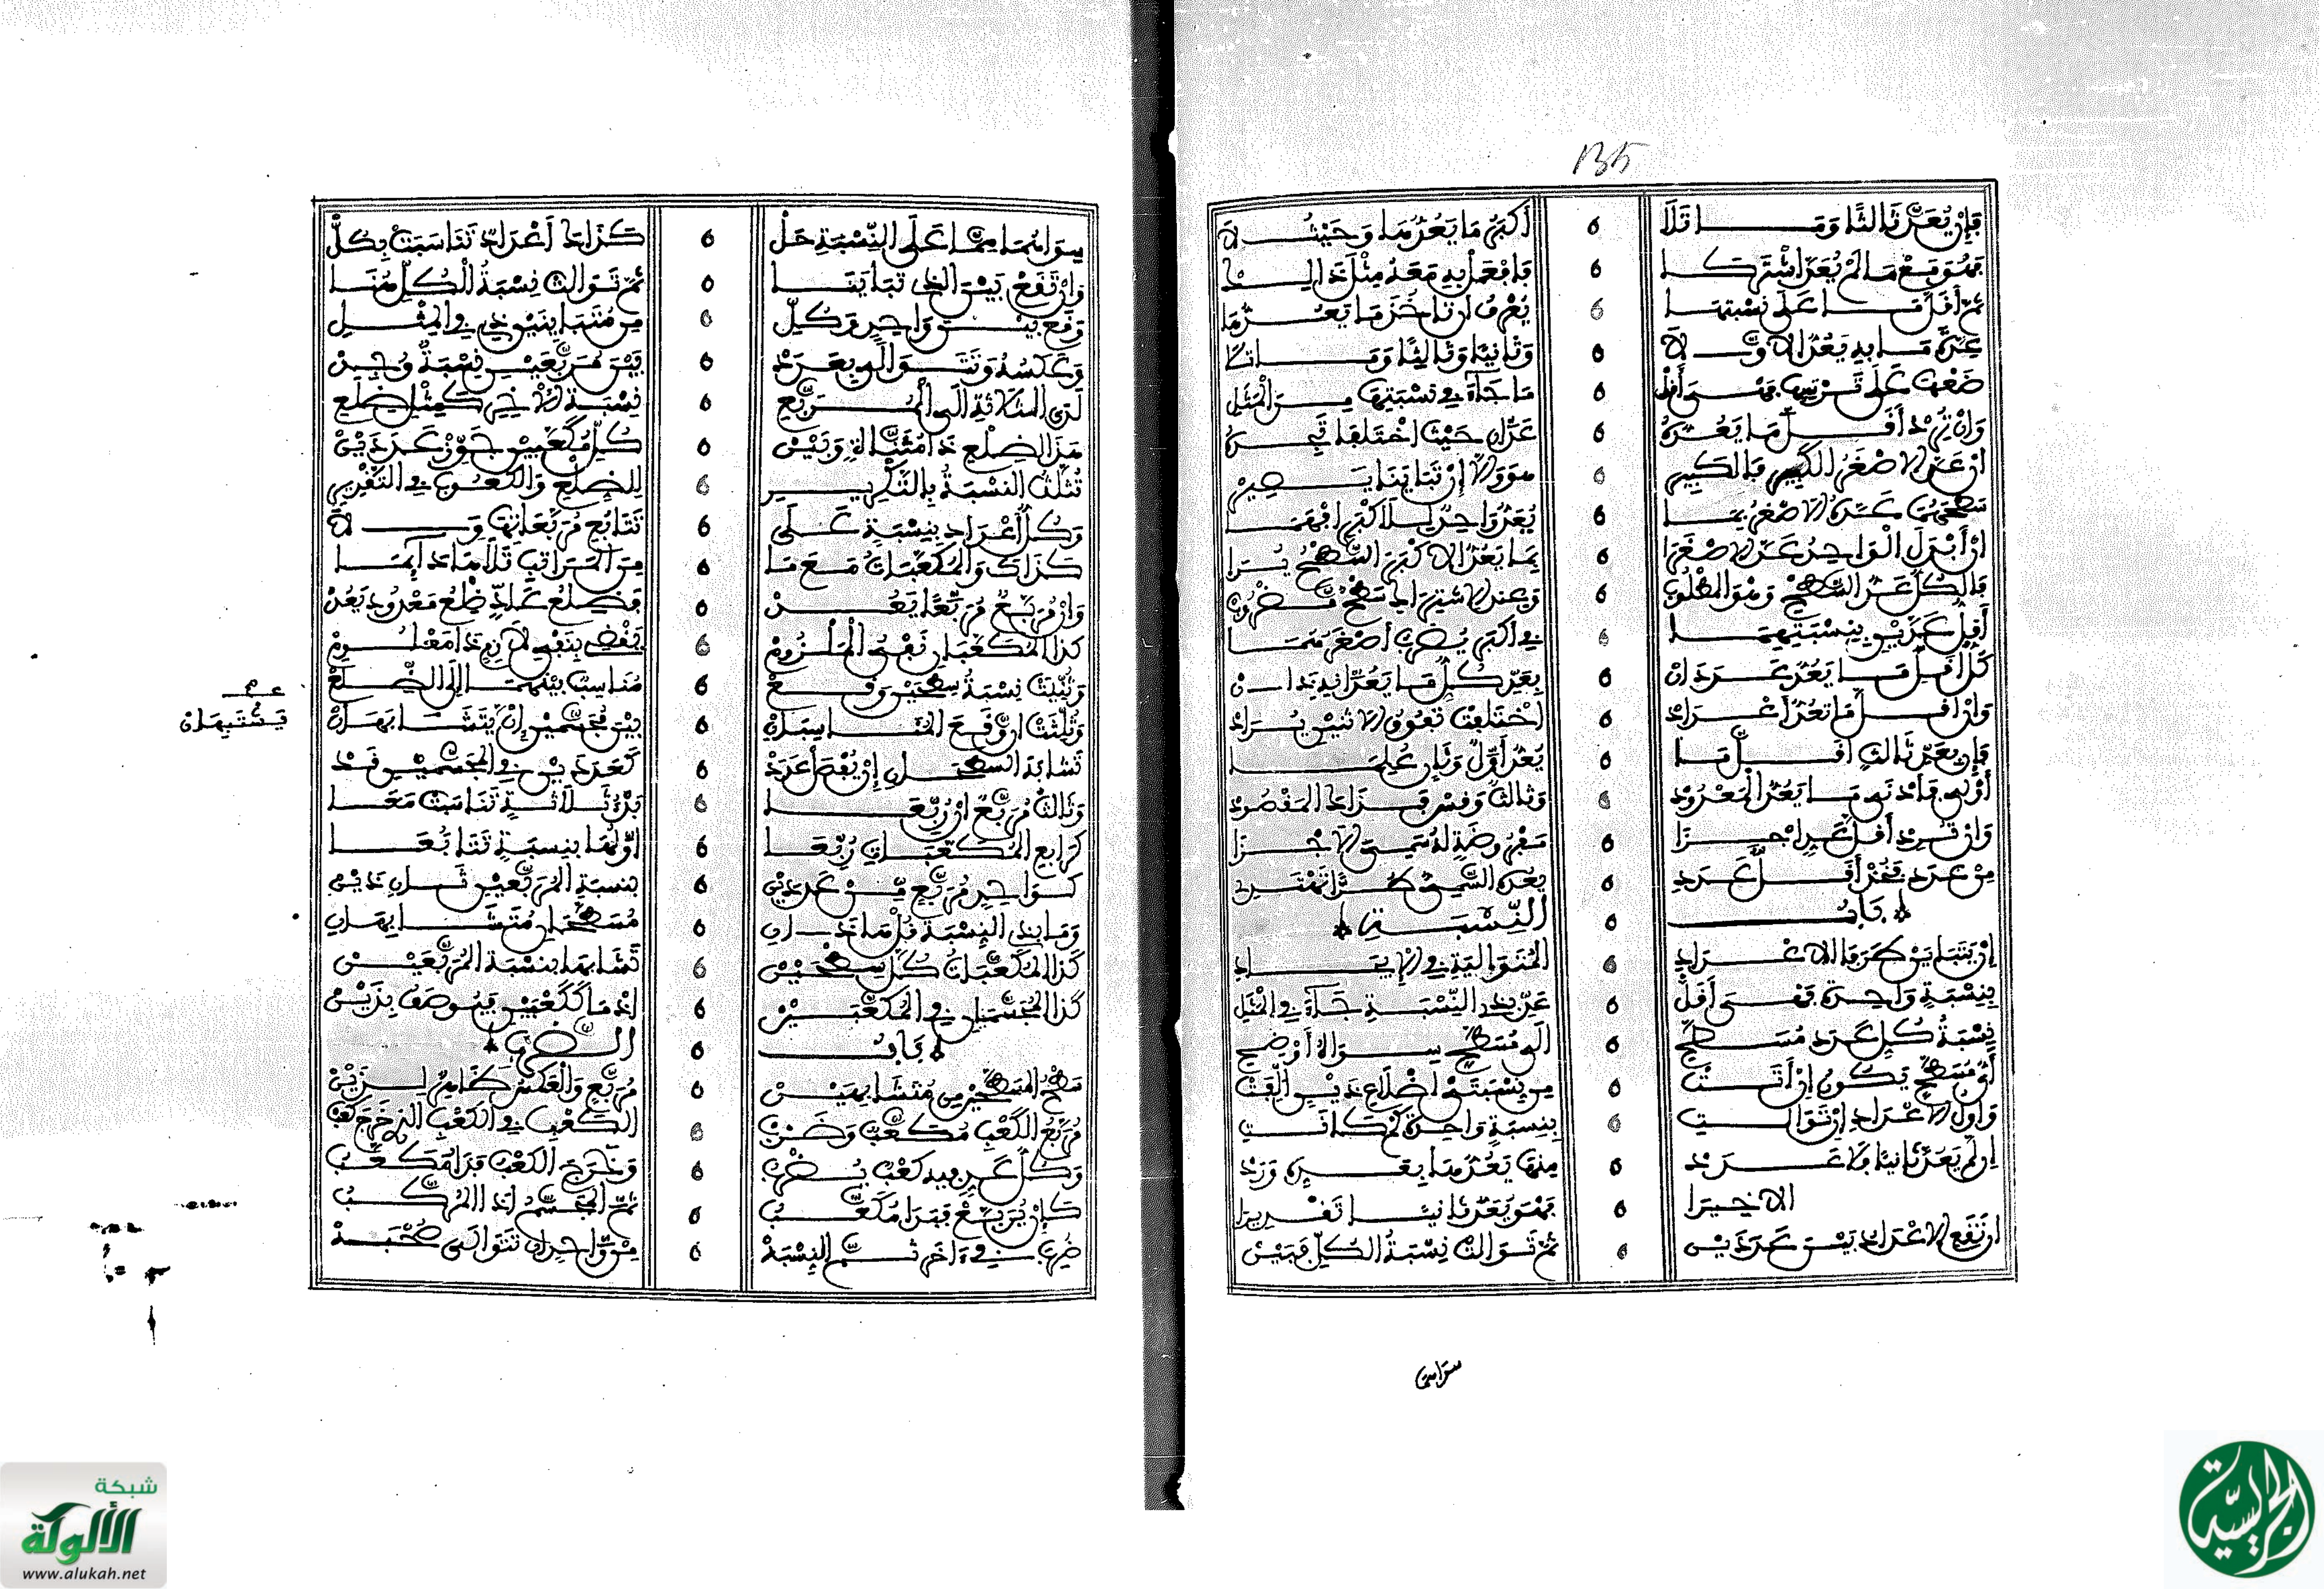 135
فإن يعد ثالثا وما تلا أكبر ما يعدما وحيث لا
فهو مع ما لم يعد اشتركا فافعل به معه مثل ذلكا
ثم أقل ما على نسبتها يعرف أن تأخذ ما تعدها
عدة ما به يعد الاولا وثانيا وثالثا وما تلا
ضعها على ترتيب فهي أقل ما جاء في نسبتها من المثل
وان يرد أقل ما يعده عدان حيث اختلفا فحده
ان عد الاصغر الكبير فالكبير هو والا ان تباينا يصير
سطحهما عده الاصغر بما يعد واحد للاكبر افهما
ان أبدل الواحد عد الاصغرا بما يعد الاكبر السطح يرا
فالكل عد السطح وهو المطلوب وعند الاشتراك سطح مضروب
أقل عدين بنسبتيهما في أكبر يضرب أصغرهما
كل أقل ما يعد عددان بعد كل ما يعدانه بدان
وان أقل ما تعد أعداد اختلفت تفوق الاثنين يراد
فإن يعد ثالث أقل ما يعد أول وثان علما
أو لم فأدنى ما يعد المعدود وثالث وقس فزاد المقصود
وان ترد أقل عد اجزا مفروضة له سمي الاجزا
من عدد فخذ أقل عدد يعده السمي كذا تقتد
باب النسبة
ان يتباين طرفا الاعداد المتوالية في الايراد
بنسبة واحدة فهي أقل عد بذي النسبة جاء في المثل
نسبة كل عدد مسطح الى مسطح سواه أوضح
أي مسطح يكون ان أتت من نسبتي اضلاع ذين الفت
وأول الاعداد ان توالت بنسبة واحدة ثم كانت
ان لم يعد ثانيا فلا عدد منها يعد ما بعده ورد
الاخيرا فهو يعد ثانيا تقديرا
ان تقع الاعداد بين عددين ثم توالت نسبة الكل فبين
سواهما
سواهما مما على النسبة حل كذا اعداد تناسبت بكل
وان تقع بين الذي تباينا ثم توالت نسبة الكل هنا
وقع بين واحد وكل من متباينين ذي في المثل
وعكسه وتتوالى بعدد بين مربعين نسبة وجد
لدى الثلاثة الى المربع نسبة الاخير كمثل ضلع
هذا لضلع ذا مثناة وبين كل مكعبين جوز عددين
تثلث النسبة بالتكرير للضلع والكعوب في التقرير
وكل أعداد بنسبة على تتابع مربعاتها ولا
كذاك والمكعبات مع ما من المراتب تلاها دائما
وان مربع مربعا يعد فضلع عاد ضلع معدود يعد
كذا المكعبان نفي الملزوم يقضي بنفي لازم ذا معلوم
وثنيت نسبة سطحين وقع مناسب بينهما الى الضلع
وثلثت ان وقع المناسبان بين مجسمين ان يتشابهان
عـــ
يشتبهان
تشابه السطحان ان يقع عدد كعددين في المجسمين قد
وثالث مربع ان ربعا بدء ثلاثة تناسبت معا
كرابع المكعبات ربعا اولها بنسبة تتابعا
كواحد مربع من عددين بنسبة المربعين ثان ذين
وما بذي النسبة قل هاذان مسطحان متشابهان
كذا المكعبات كل سطحين تشابها بنسبة المربعين
كذا المجسمان في المكعبين اذ هما ككعبين فيوصف بذين
باب الضرب
سطح المسطحين متشابهين مربع والعكس ظاهر لزين
مربع الكعب مكعب وضرب الكعب في الكعب الذي خرج كعب
وكل عدد فيه كعب يضرب وخرج الكعب فذا مكعب
كإن يربع فيرا مكعب ثم المجسم اذا المركب
ضرب في آخر ثم النسبة من واحد ان تتوالى صحبة
شبكة
الألوكة
www.alukah.net